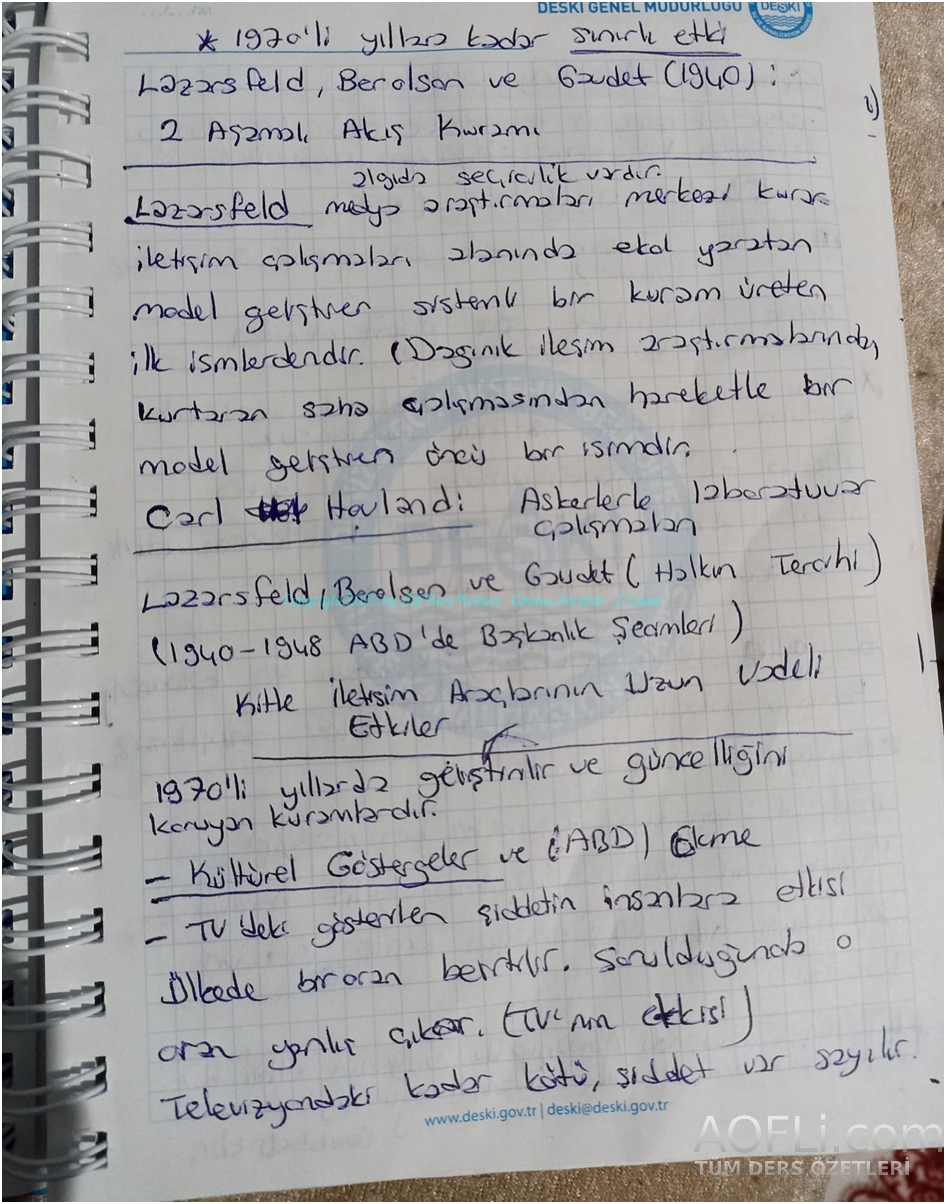 DESKİ GENEL MÜDÜRLÜĞÜ
DESKİ
* 1970'li yıllara kadar sınırlı etki
Lazarsfeld, Berolson ve Gaudet (1940) :
2 Aşamalı Akış Kuramı
algıda seçicilik vardır.
Lazarsfeld medya araştırmaları merkezi kurar
iletişim çalışmaları alanında ekol yaratan
model geliştiren sistemli bir kuram üreten
ilk isimlerdendir. (Dağınık ileşim araştırmalarından
kurtaran saha çalışmasından hareketle bir
model geliştiren öncü bir isimdir.
Carl Hovland: Askerlerle laboratuvar
çalışmaları
Lazarsfeld, Berelson ve Gaudet ( Halkın Tercihi )
(1940-1948 ABD'de Başkanlık Seçimleri )
Kitle İletişim Araçlarının Uzun Vadeli
Etkiler
1970'li yıllarda geliştirilir ve güncelliğini
koruyan kuramlardır.
- Kültürel Göstergeler ve (ABD) Ekme
- TV'deki gösterilen şiddetin insanlara etkisi
Ülkede bir oran belirtilir. Sorulduğunda o
oran yanlış çıkar. (TV'nin etkisi)
Televizyondaki kadar kötü, şiddet var sayılır.
www.deski.gov.tr | deski@deski.gov.tr
AOFLi.com
TÜM DERS ÖZETLERİ